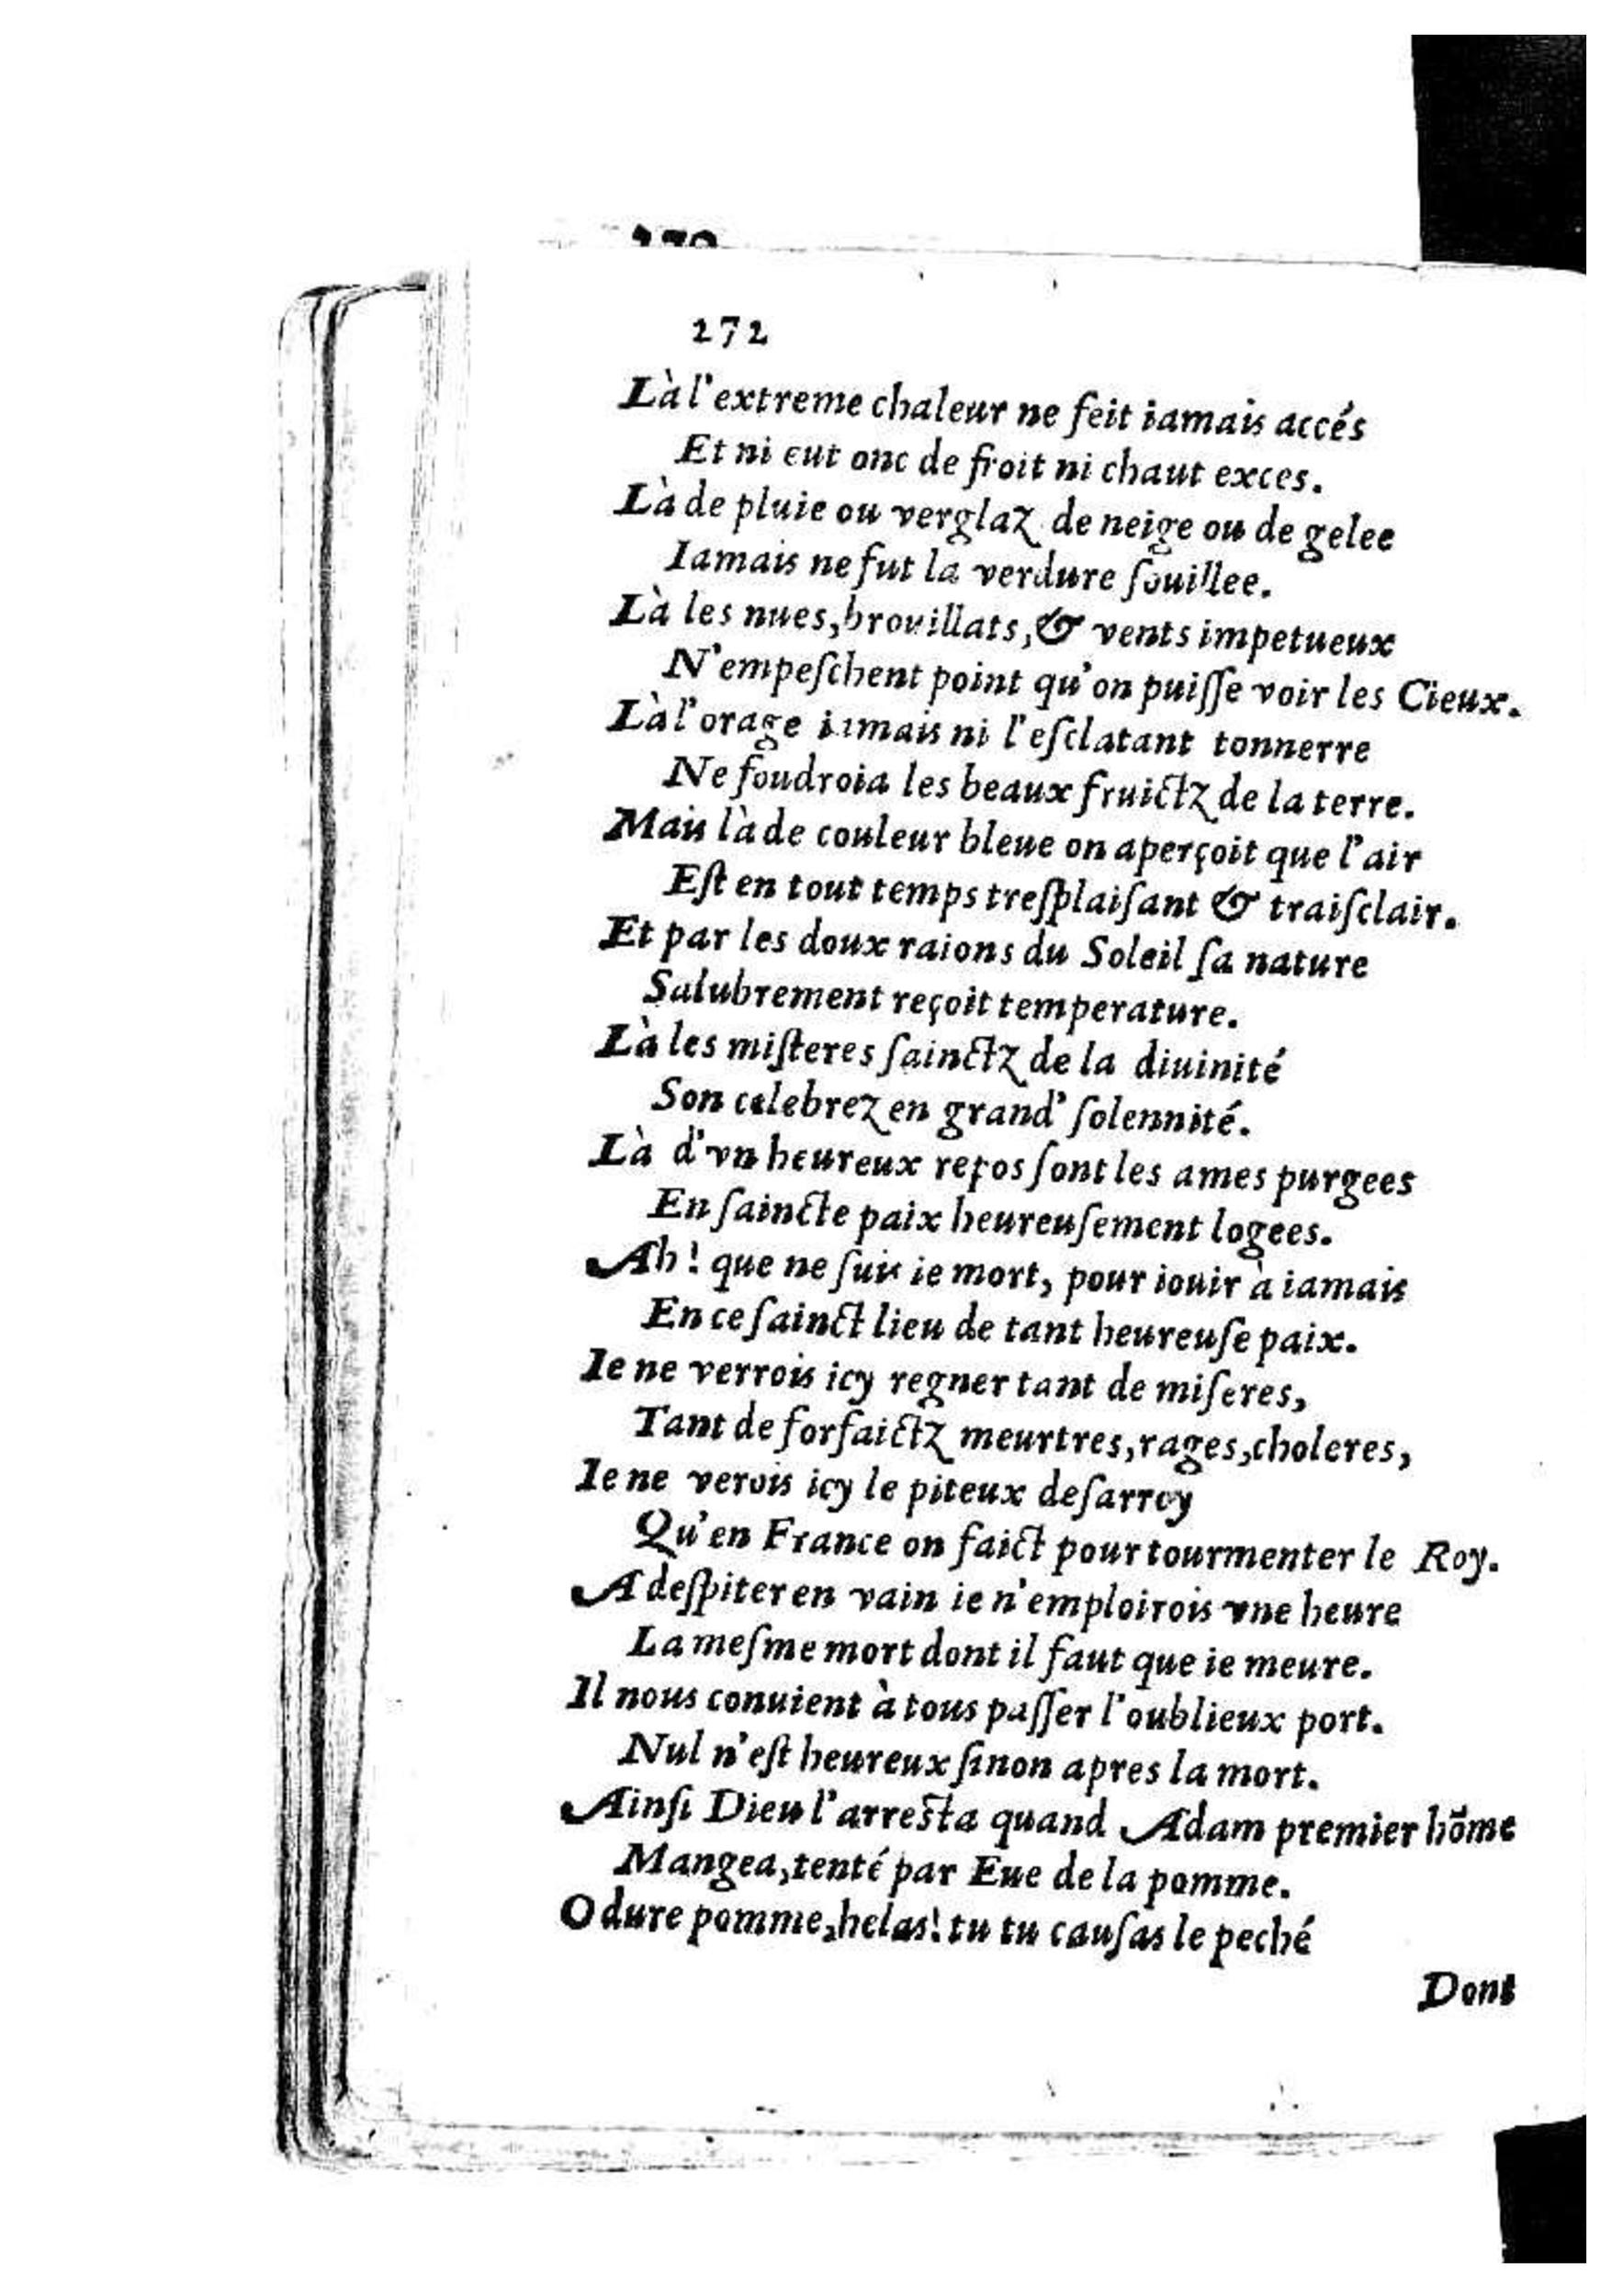 272
Là l'extreme chaleur ne feit iamais accés
Et ni eut onc de froit ni chaut exces.
Là de pluie ou verglaz de neige ou de gelee
Iamais ne fut la verdure ſouillee.
Là les nues, brouillats, & vents impetueux
N'empeſchent point qu'on puiſſe voir les Cieux.
Là l'orage iamais ni l'eſclatant tonnerre
Ne foudroia les beaux fruictz de la terre.
Mais là de couleur bleue on aperçoit que l'air
Eſt en tout temps treſplaiſant & traiſclair.
Et par les doux raions du Soleil ſa nature
Salubrement reçoit temperature.
Là les miſteres ſainctz de la diuinité
Son celebrez en grand' ſolennité.
Là d'vn heureux repos ſont les ames purgees
En ſaincte paix heureuſement logees.
Ah! que ne ſuis ie mort, pour iouir à iamais
En ce ſainct lieu de tant heureuſe paix.
Ie ne verrois icy regner tant de miſeres,
Tant de forfaictz meurtres, rages, choleres,
Ie ne verois icy le piteux deſarroy
Qu'en France on faict pour tourmenter le Roy.
A deſpiter en vain ie n'emploirois vne heure
La meſme mort dont il faut que ie meure.
Il nous conuient à tous paſſer l'oublieux port.
Nul n'eſt heureux ſinon apres la mort.
Ainſi Dieu l'arreſta quand Adam premier hõme
Mangea, tenté par Eue de la pomme.
O dure pomme, helas! tu tu cauſas le peché
Dont